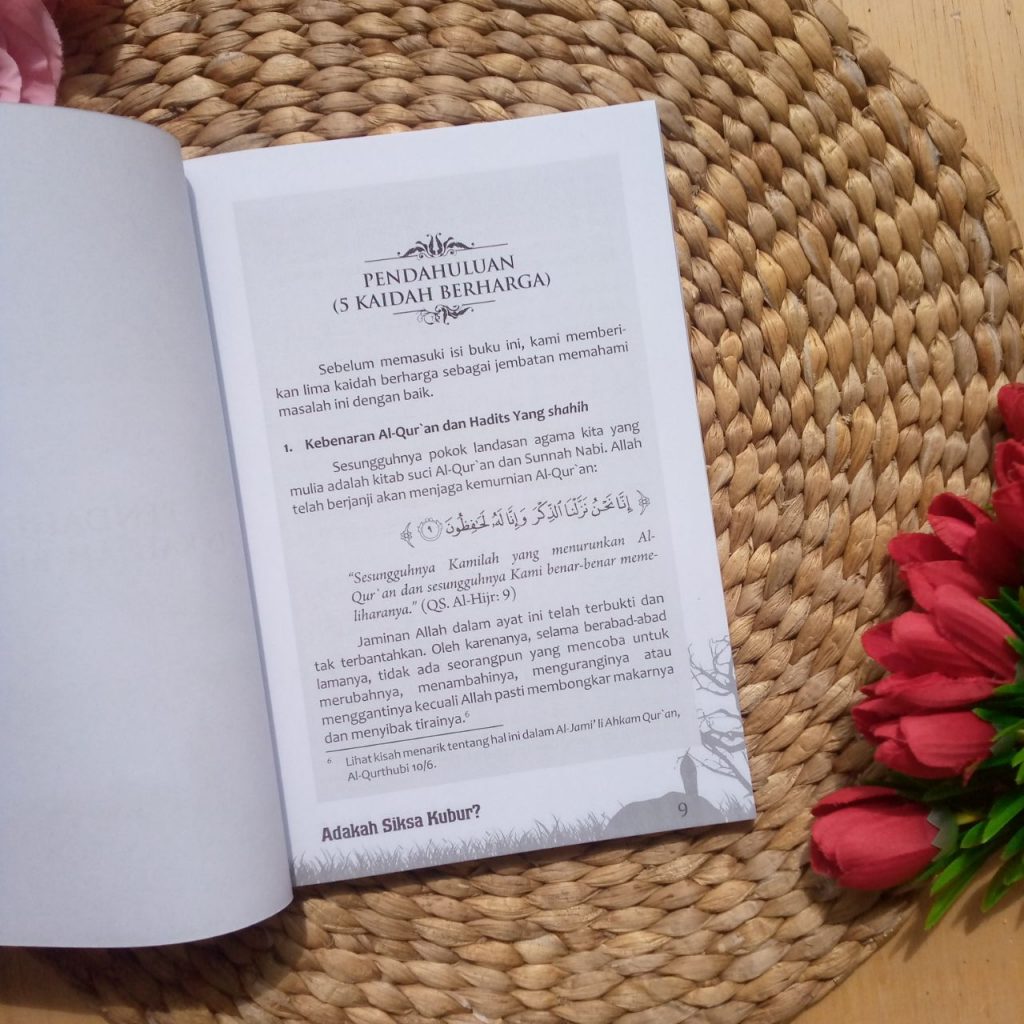 PENDAHULUAN
(5 KAIDAH BERHARGA)
Sebelum memasuki isi buku ini, kami memberi-
kan lima kaidah berharga sebagai jembatan memahami
masalah ini dengan baik.
1. Kebenaran Al-Qur`an dan Hadits Yang shahih
Sesungguhnya pokok landasan agama kita yang
mulia adalah kitab suci Al-Qur`an dan Sunnah Nabi. Allah
telah berjanji akan menjaga kemurnian Al-Qur`an:
﴿ إِنَّا نَحْنُ نَزَّلْنَا ٱلذِّكْرَ وَإِنَّا لَهُۥ لَحَٰفِظُونَ ٩ ﴾
“Sesungguhnya Kamilah yang menurunkan Al-
Qur`an dan sesungguhnya Kami benar-benar meme-
liharanya.” (QS. Al-Hijr: 9)
Jaminan Allah dalam ayat ini telah terbukti dan
tak terbantahkan. Oleh karenanya, selama berabad-abad
lamanya, tidak ada seorangpun yang mencoba untuk
merubahnya, menambahinya, menguranginya atau
menggantinya kecuali Allah pasti membongkar makarnya
dan menyibak tirainya.⁶
⁶ Lihat kisah menarik tentang hal ini dalam Al-Jami’ li Ahkam Qur`an,
Al-Qurthubi 10/6.
Adakah Siksa Kubur?
9